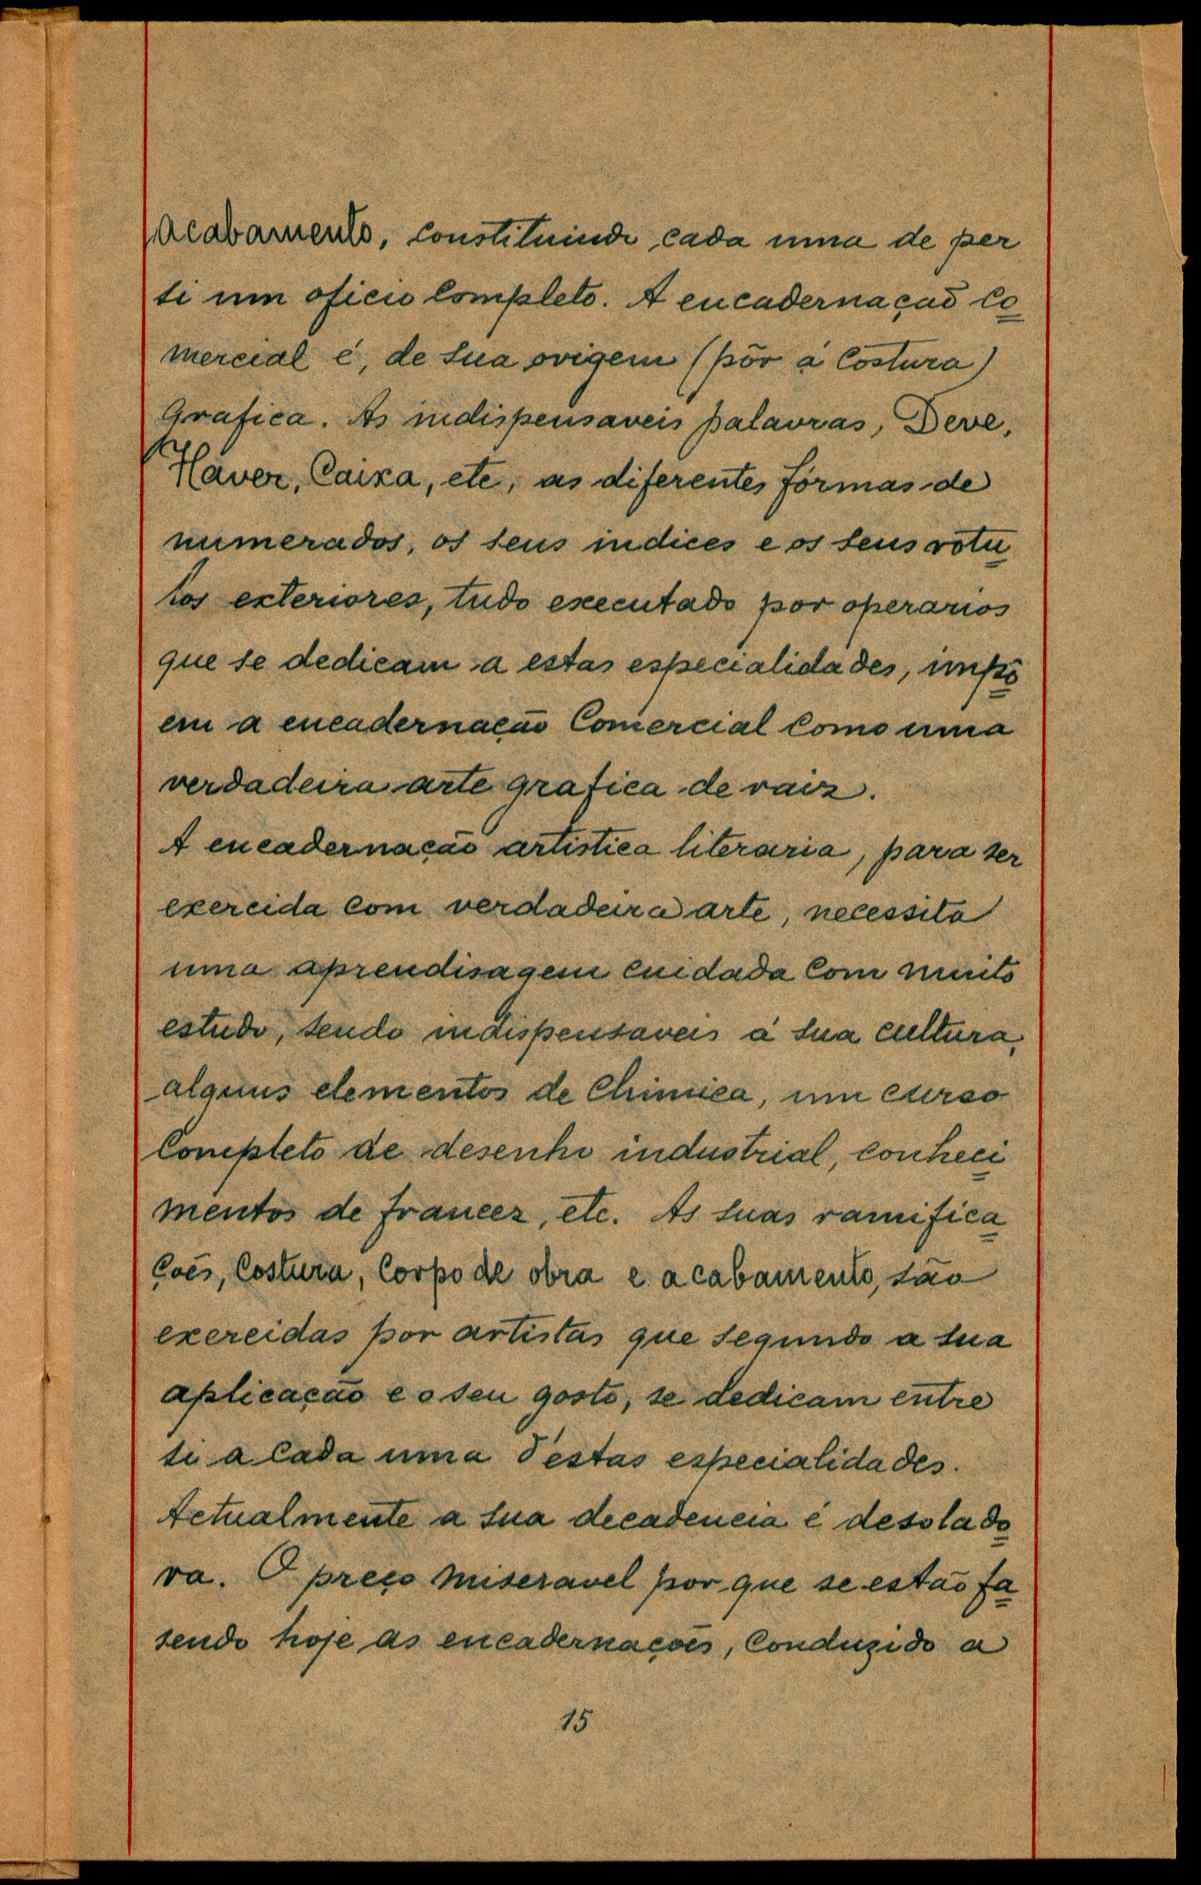 acabamento, constituindo cada uma de per
si um oficio completo. A encadernação co
mercial é, de sua origem (pôr á costura)
Grafica. As indispensaveis palavras, Deve,
Haver, Caixa, etc, as diferentes fórmas de
numerados, os seus indices e os seus rótu
los exteriores, tudo executado por operarios
que se dedicam a estas especialidades, impõ
em a encadernação Comercial como uma
verdadeira arte grafica de raiz.
A encadernação artistica literaria, para ser
exercida com verdadeira arte, necessita
uma aprendisagem cuidada com muito
estudo, sendo indispensaveis á sua cultura,
alguns elementos de Chimica, um curso
completo de desenho industrial, conheci
mentos de francez, etc. As suas ramifica
ções, Costura, Corpo de obra e acabamento, são
exercidas por artistas que segundo a sua
aplicação e o seu gosto, se dedicam entre
si a cada uma d'estas especialidades.
Actualmente a sua decadencia é desolado
ra. O preço miseravel por que se estão fa
sendo hoje as encadernações, conduzido a
15